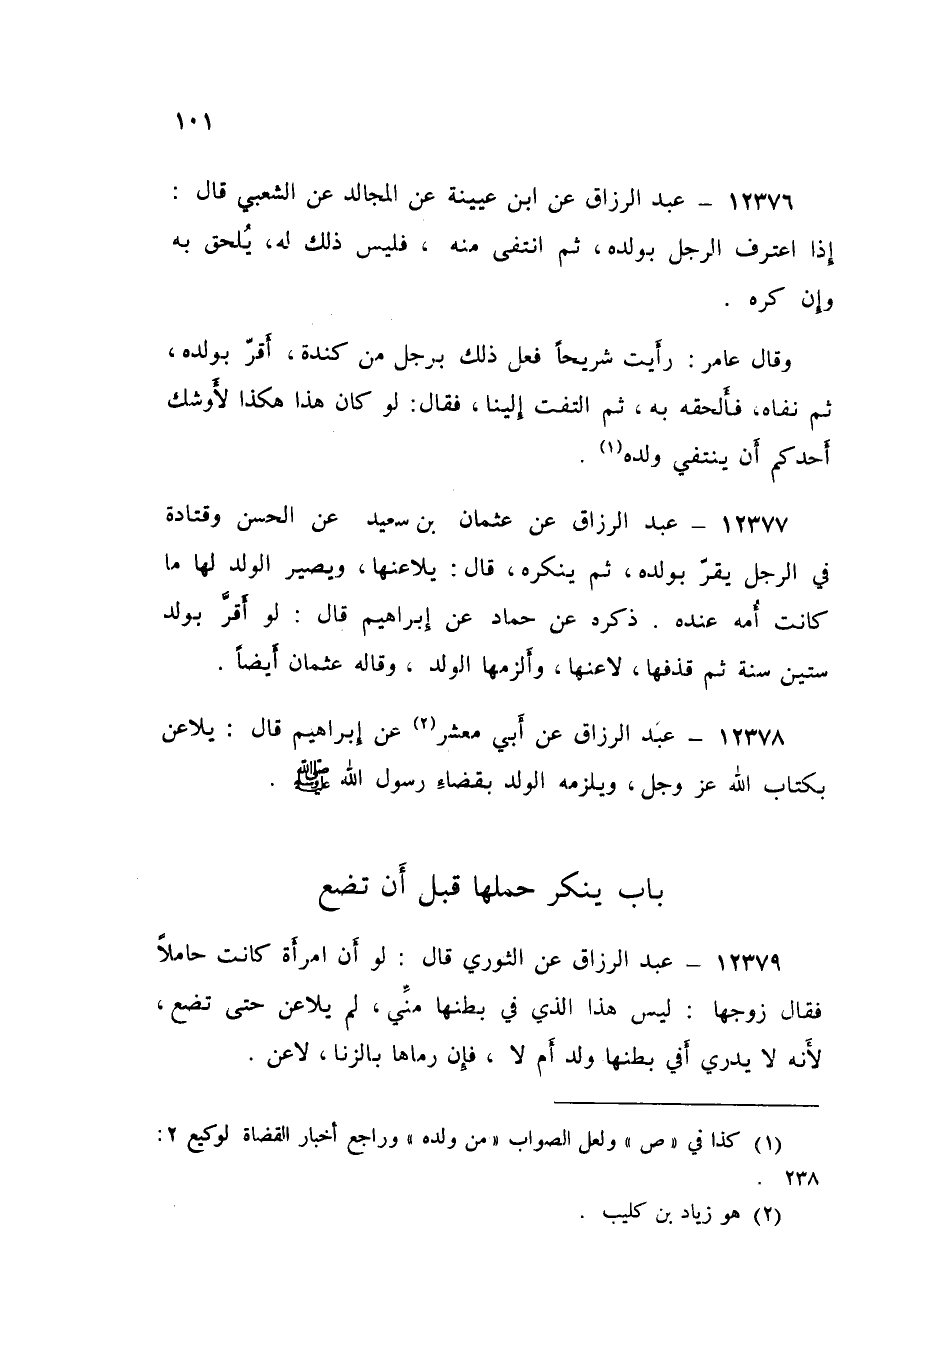 ١٠١
١٢٣٧٦ – عبد الرزاق عن ابن عيينة عن المجالد عن الشعبي قال :
إذا اعترف الرجل بولده، ثم انتفى منه ، فليس ذلك له، يُلحق به
وإن كره .
وقال عامر : رأَيت شريحاً فعل ذلك برجل من كندة، أَقرّ بولده،
ثم نفاه، فأَلحقه به، ثم التفت إلينا، فقال: لو كان هذا هكذا لأَوشك
أَحدكم أَن ينتفي ولده(١) .
١٢٣٧٧ – عبد الرزاق عن عثمان بن سعيد عن الحسن وقتادة
في الرجل يقرّ بولده، ثم ينكره، قال: يلاعنها، ويصير الولد لها ما
كانت أُمه عنده . ذكره عن حماد عن إبراهيم قال : لو أَقرَّ بولد
ستين سنة ثم قذفها، لاعنها، وأَلزمها الولد ، وقاله عثمان أَيضاً .
١٢٣٧٨ – عبد الرزاق عن أَبي معشر(٢) عن إبراهيم قال : يلاعن
بكتاب الله عز وجل، ويلزمه الولد بقضاءِ رسول الله ﷺ .
باب ينكر حملها قبل أَن تضع
١٢٣٧٩ – عبد الرزاق عن الثوري قال : لو أَن امرأَة كانت حاملاً
فقال زوجها : ليس هذا الذي في بطنها منِّي، لم يلاعن حتى تضع،
لأَنه لا يدري أَفي بطنها ولد أَم لا ، فإن رماها بالزنا، لاعن .
(١) كذا في « ص » ولعل الصواب «من ولده» وراجع أخبار القضاة لوكيع ٢:
٢٣٨ .
(٢) هو زياد بن كليب .